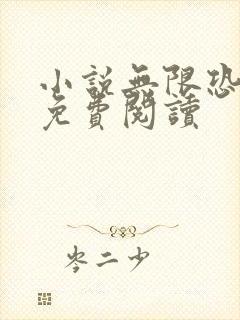 小說無限恐
免費閱讀
岑二少